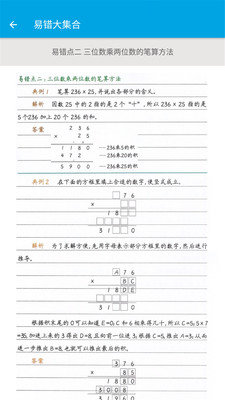 易错大集合
易错点二 三位数乘两位数的笔算方法
易错点二:三位数乘两位数的笔算方法
典例1 笔算236×25,并说出各部分的含义。
解析 因数25中的2指的是2个“十”,所以236×25指的是
5个236加上20个236的和。
答案
2 3 6
× 2 5
1 1 8 0 —236乘5的积
4 7 2 —236乘20的积
5 9 0 0 —236乘25的积
典例2 在下面的方框里填上合适的数字,使竖式成立。
□ 7 6
× □ □
1 8 □ □
3 1 □ □ 0
解析 为了求解方便,先用字母表示部分方框里的数字,然后进行
推导。
A 7 6
× B C
1 8 D E
3 1 □ □ 0
根据积末尾的0可以知道E=0;C和6相乘得几十,所以C=5;5×7
=35,加进上来的3得出D=8,且向前一位进3;根据C=5,推出A=3;从而
进一步推出B=8,也就可以推出最后的积。
答案
3 7 6
× 8 5
1 8 8 0
3 0 0 8
3 1 9 6 0